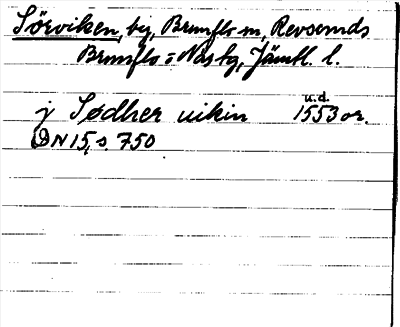 Sörviken, by, Brunflo sn, Revsunds
Brunflo o Näs tg, Jämtl. l.
u.d.
j Sødher uikin 1553 or.
DN 15, s. 750